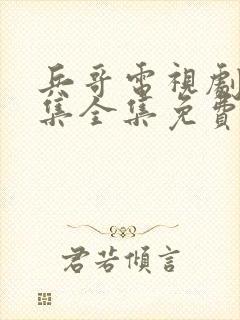 兵哥電視劇
集全集免費
君若傾言